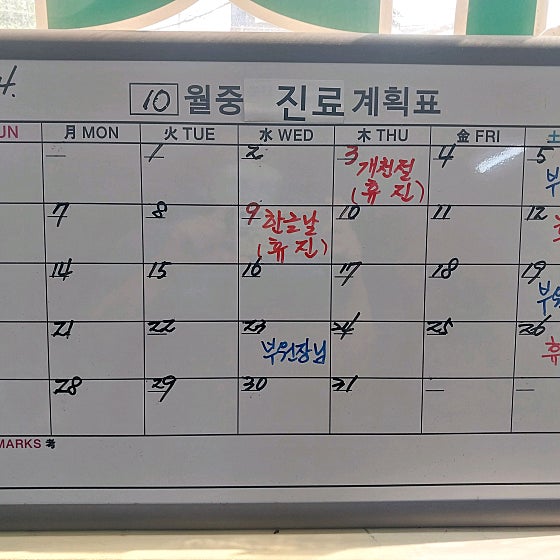 4.
10 월중 진료계획표
UN 月 MON 火 TUE 水 WED 木 THU 金 FRI 土
1 2 3 4 5
개천절
(휴진)
부
7 8 9 10 11 12
한글날
(휴진)
14 15 16 17 18 19
부원
21 22 23 24 25 26
부원장님
휴
28 29 30 31
MARKS 考